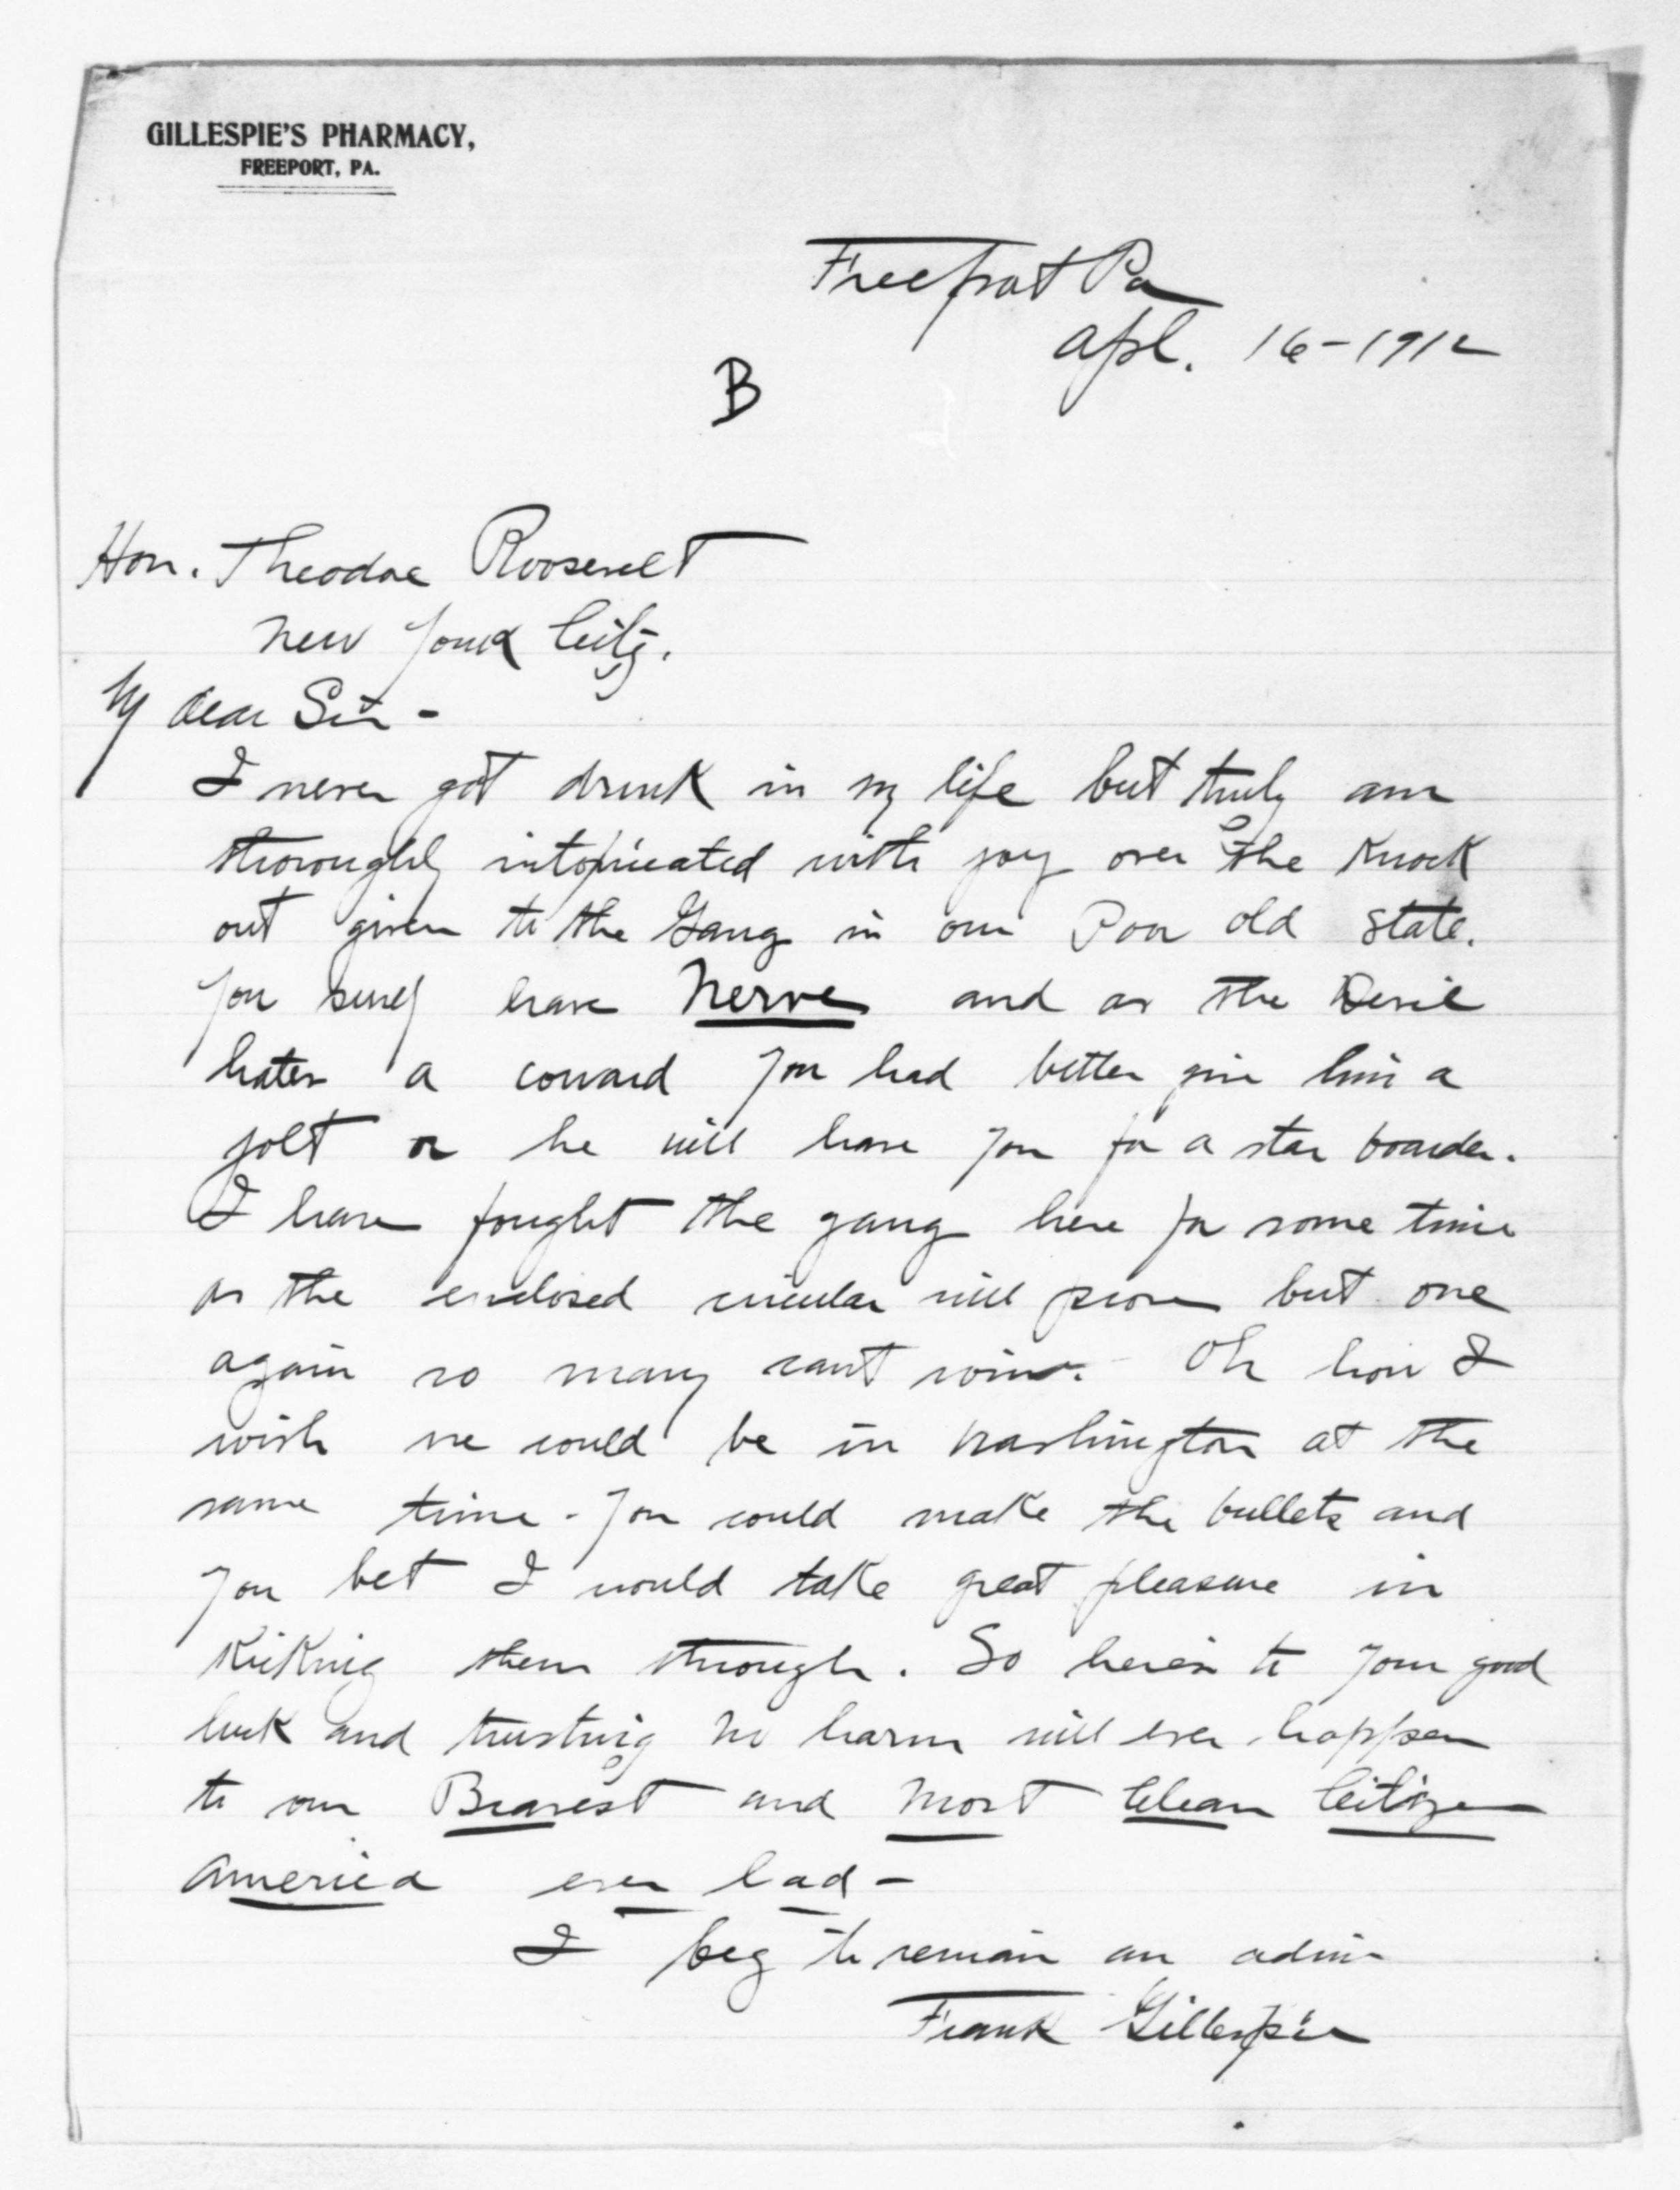 GILLESPIE'S PHARMACY,
FREEPORT, PA.
Freeport Pa
Apl. 16-1912
B
Hon. Theodore Roosevelt
New York City.
My dear Sir -
I never got drunk in my life but truly am
thoroughly intoxicated with joy over the Knock
out given to the Gang in our Poor old State.
You surely have Nerve and as the Devil
hates a coward you had better give him a
jolt or he will have you for a star boarder.
I have fought the gang here for some time
as the enclosed circular will prove but one
again so many cant win. Oh how I
wish we could be in Washington at the
same time - You could make the bullets and
you bet I would take great pleasure in
Kicking them through. So here's to your good
luck and trusting no harm will ever happen
to our Bravest and Most Clean Citizen
America ever had -
I beg to remain an admir
Frank Gillespie